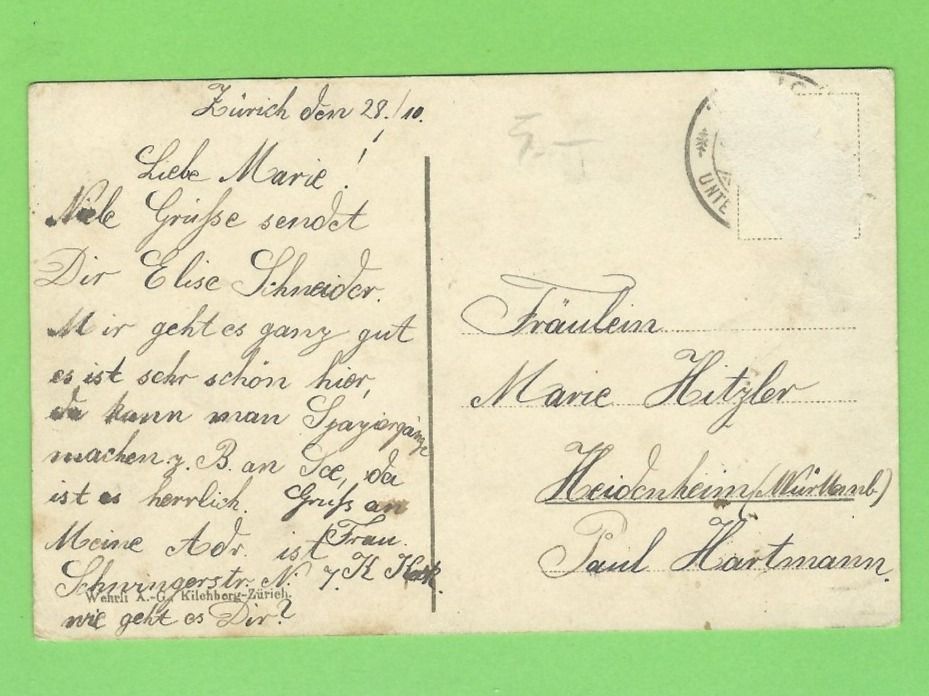 Zürich den 28./10.
Liebe Marie!
Viele Grüsse sendet
Dir Elise Schneider.
Mir geht es ganz gut
es ist sehr schön hier,
da kann man Spaziergänge
machen z. B. an See, da
ist es herrlich. Gruss an
Meine Adr. ist Frau
Schwingerstr. N. 7. K
Wehrli A.-G., Kilchberg-Zürich.
wie geht es Dir?
UNTE
Fräulein
Marie Hitzler
Heidenheim (Württemb)
Paul Hartmann.